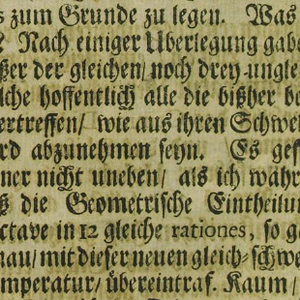 s zum Grunde zu legen. Was
? Nach einiger Uberlegung gabe
ßer der gleichen/ noch drey ungle
lche hoffentlich alle die bißher be
ertreffen/ wie aus ihren Schwe
rd abzunehmen seyn. Es gef
ner nicht uneben/ als ich wahr
ß die Geometrische Eintheilun
ctave in 12 gleiche rationes, so ge
nau/ mit dieser neuen gleich-schwe
mperatur/ übereintraf. Kaum/